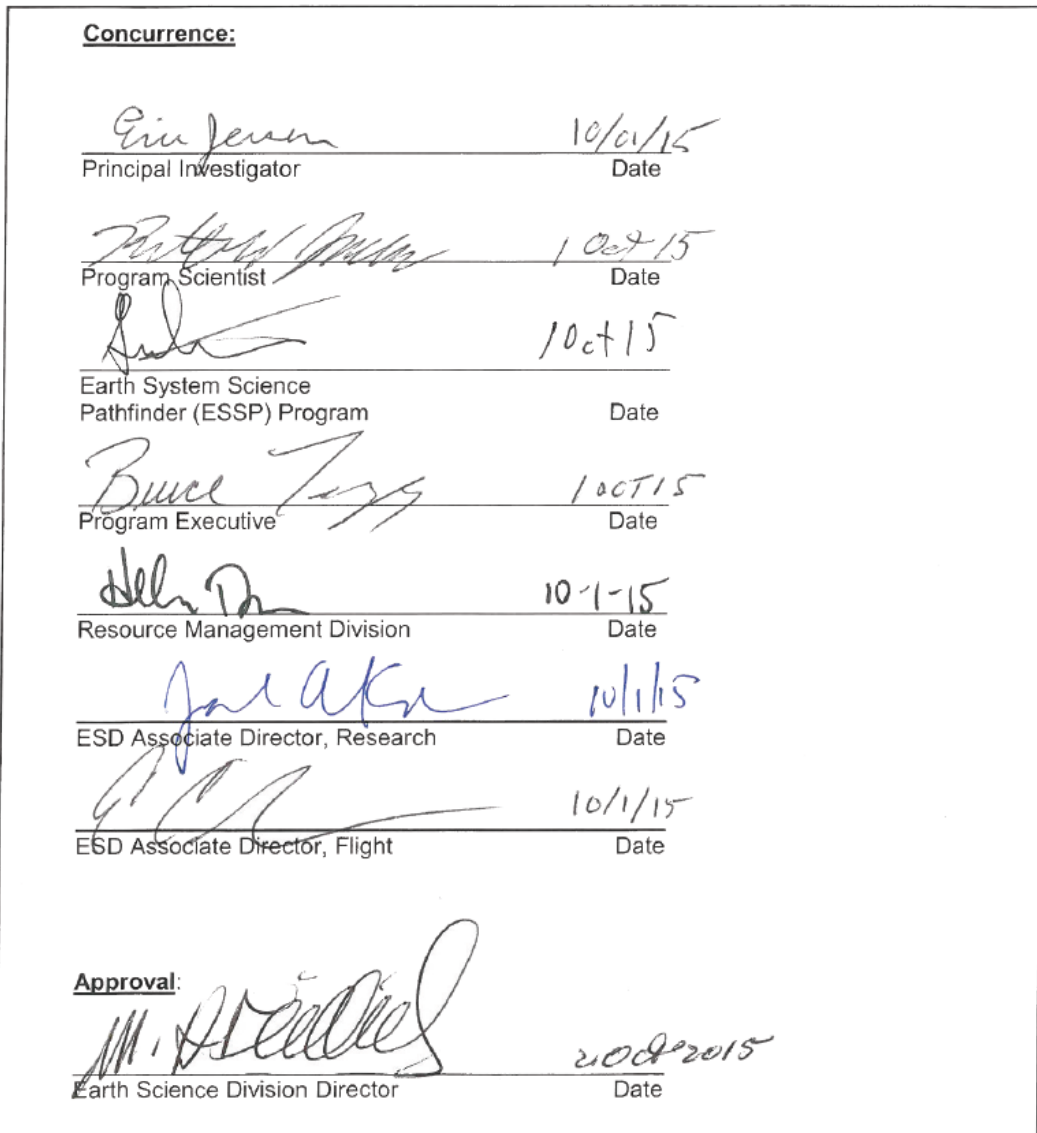 Concurrence:
Eric Jensen 10/01/15
Principal Investigator Date
1 Oct 15
Program Scientist Date
1 Oct 15
Earth System Science
Pathfinder (ESSP) Program Date
Bruce Tagg 1 OCT 15
Program Executive Date
10-1-15
Resource Management Division Date
10/1/15
ESD Associate Director, Research Date
10/1/15
ESD Associate Director, Flight Date
Approval:
M.
Earth Science Division Director Date